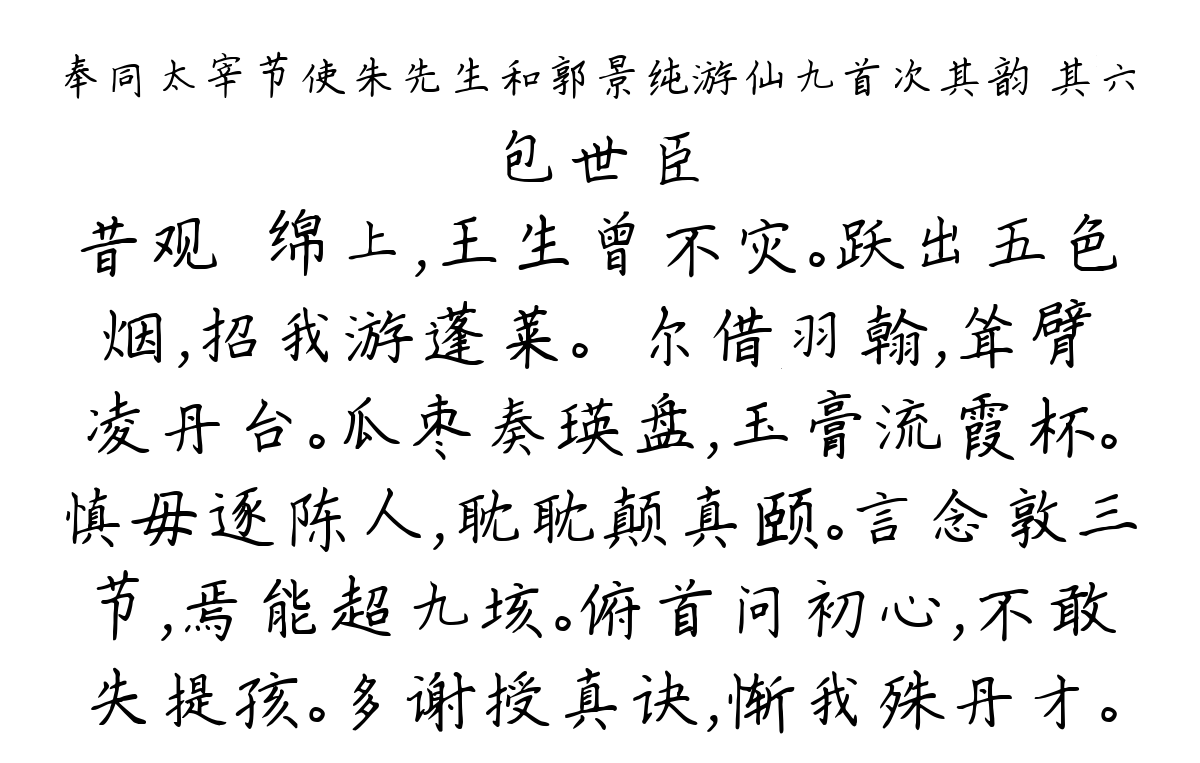 奉同太宰节使朱先生和郭景纯游仙九首次其韵 其六
包世臣
昔观 绵上,王生曾不灾。跃出五色
烟,招我游蓬莱。 尔借羽翰,耸臂
凌丹台。瓜枣奏瑛盘,玉膏流霞杯。
慎毋逐陈人,耽耽颠真颐。言念敦三
节,焉能超九垓。俯首问初心,不敢
失提孩。多谢授真诀,惭我殊丹才。